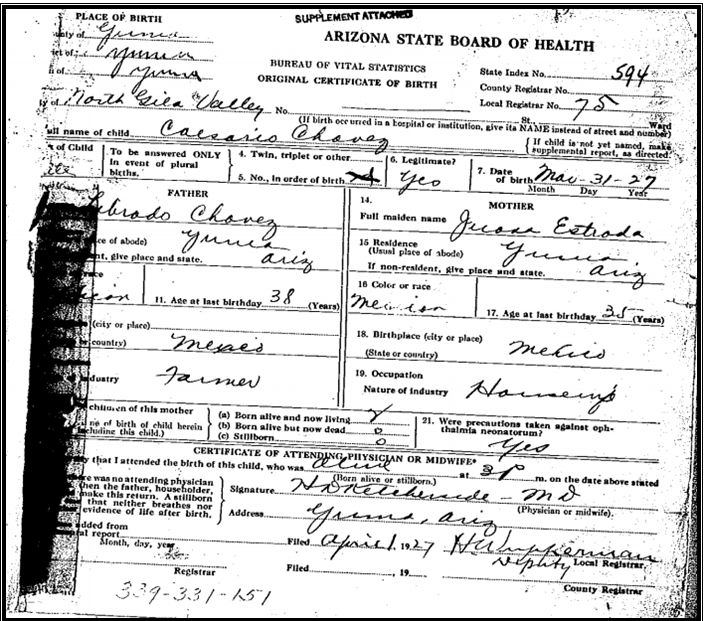 PLACE OF BIRTH
SUPPLEMENT ATTACHED
ARIZONA STATE BOARD OF HEALTH
unty of Yuma
ct of Yuma
BUREAU OF VITAL STATISTICS
State Index No. 594
n of Yuma
ORIGINAL CERTIFICATE OF BIRTH
County Registrar No.
Local Registrar No. 75
ty of North Gila Valley No. St., Ward
(If birth occurred in a hospital or institution, give its NAME instead of street and number)
ull name of child Caesario Chavez
{ If child is not yet named, make supplemental report, as directed.
of Child
To be answered ONLY
In event of plural
births.
4. Twin, triplet or other
5. No., in order of birth
6. Legitimate?
Yes
7. Date
of birth Mar-31-27
Month Day Year
FATHER
14.
MOTHER
Librado Chavez
Full maiden name Juana Estrada
ce of abode) Yuma
15 Residence
(Usual place of abode) Yuma
nt, give place and state. Ariz
If non-resident, give place and state. Ariz
race
11. Age at last birthday 38 (Years)
16 Color or race
17. Age at last birthday 35 (Years)
(city or place)
or country) Mexico
18. Birthplace (city or place)
(State or country) Mexico
ndustry Farmer
19. Occupation
Nature of industry
children of this mother
ne of birth of child herein
including this child.)
(a) Born alive and now living
(b) Born alive but now dead 0
(c) Stillborn 0
21. Were precautions taken against oph-
thalmia neonatorum?
Yes
CERTIFICATE OF ATTENDING PHYSICIAN OR MIDWIFE*
y that I attended the birth of this child, who was alive at 3 P m. on the date above stated
(Born alive or stillborn.)
ere was no attending physician
hen the father, householder,
make this return. A stillborn
that neither breathes nor
evidence of life after birth.
Signature MD
(Physician or midwife).
Address Yuma, Ariz
added from
al report
Month, day, year
Registrar
Filed April 1, 1927
Deputy Local Registrar
Filed , 19
County Registrar
339-331-151